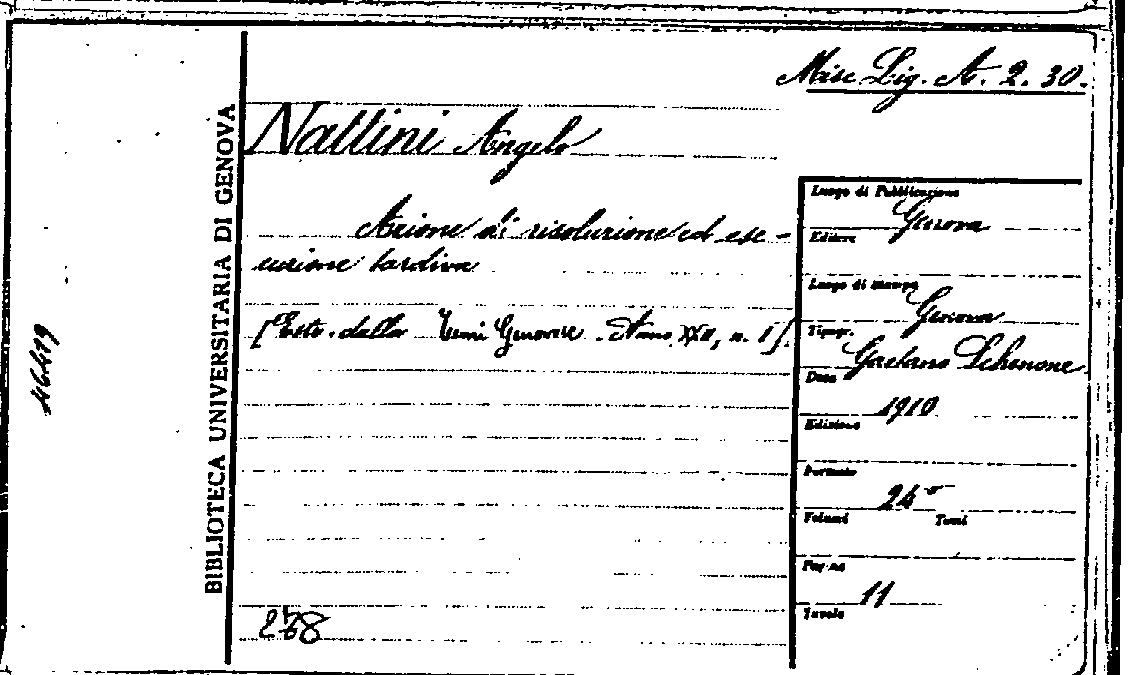 Misc Lig. A. 2. 30.
Nattini Angelo
Azione di risoluzione ed ese-
cuzione tardiva
[Estr. dalla Temi Genovese. Anno XXII, n. 1].
BIBLIOTECA UNIVERSITARIA DI GENOVA
46479
278
Luogo di Pubblicazione
Genova
Editore
Luogo di stampa
Genova
Tipogr.
Gaetano Schenone
Data
1910
Edizione
Formato
24°
Volumi Tomi
Pagine
11
Tavole